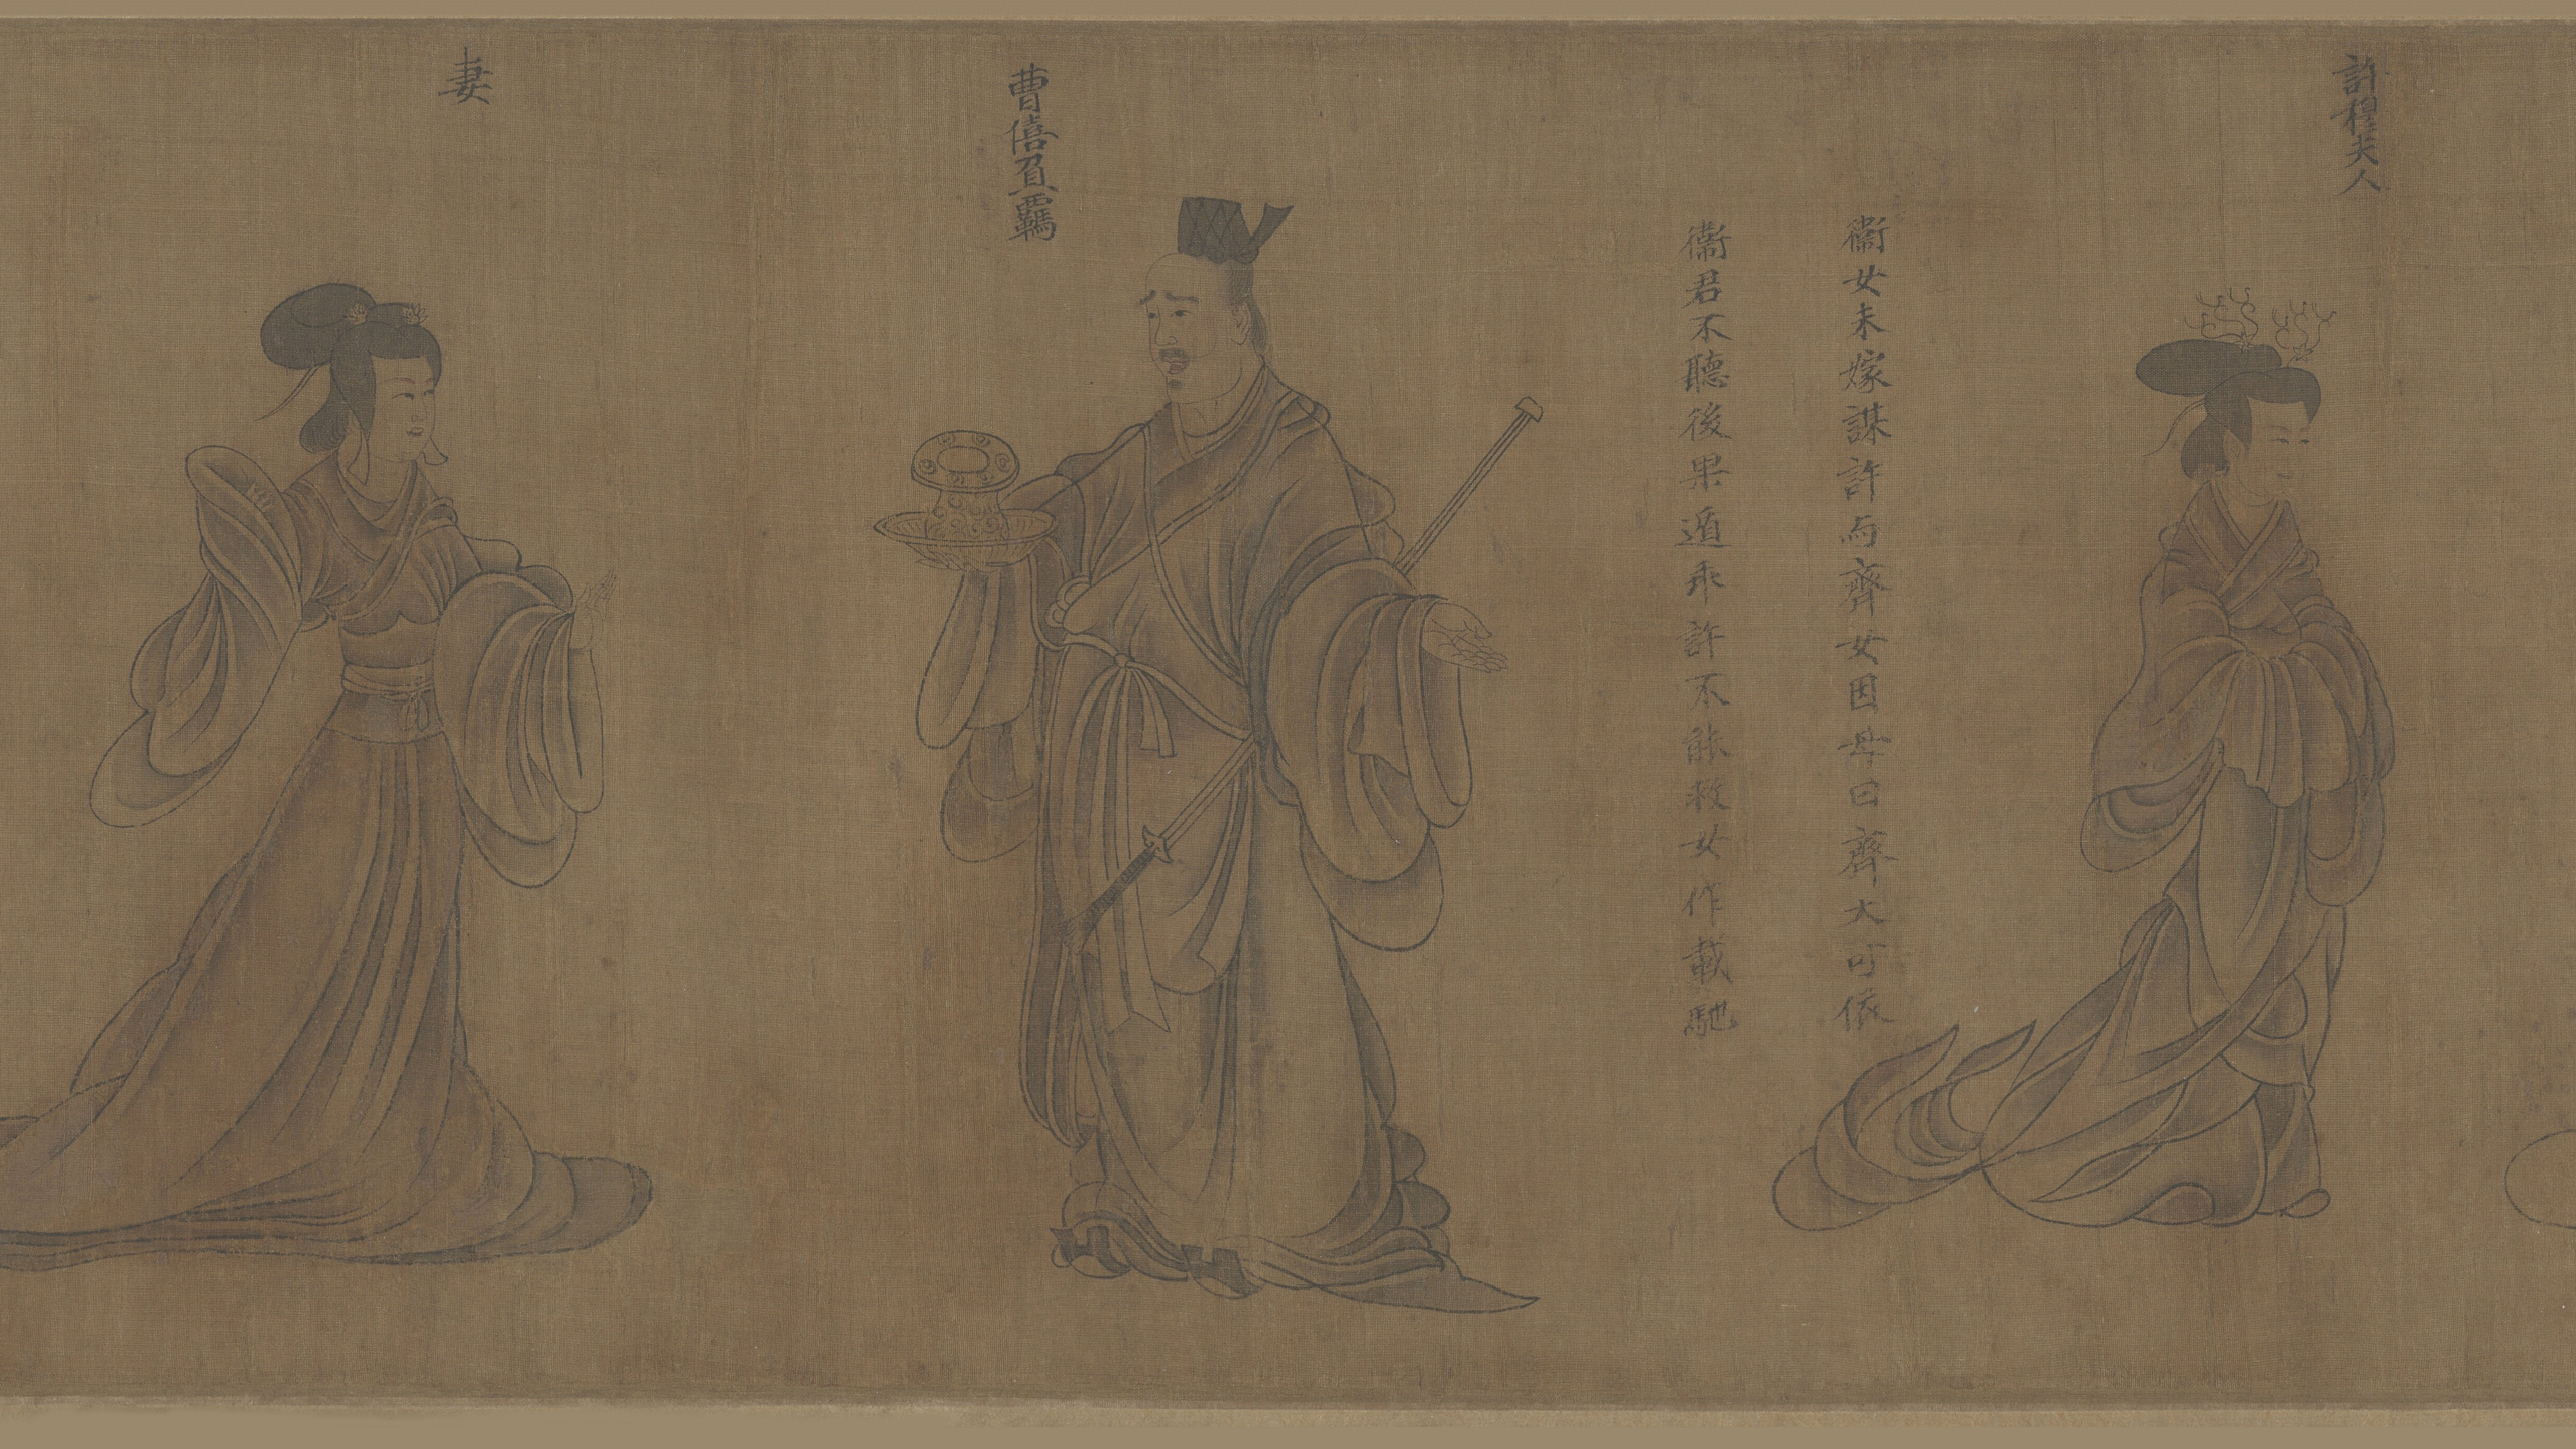 許穆夫人
衞女未嫁謀許与齊女因母曰齊大可依
衞君不聽後果遁乖許不能救女作載馳
曹僖負羈
妻